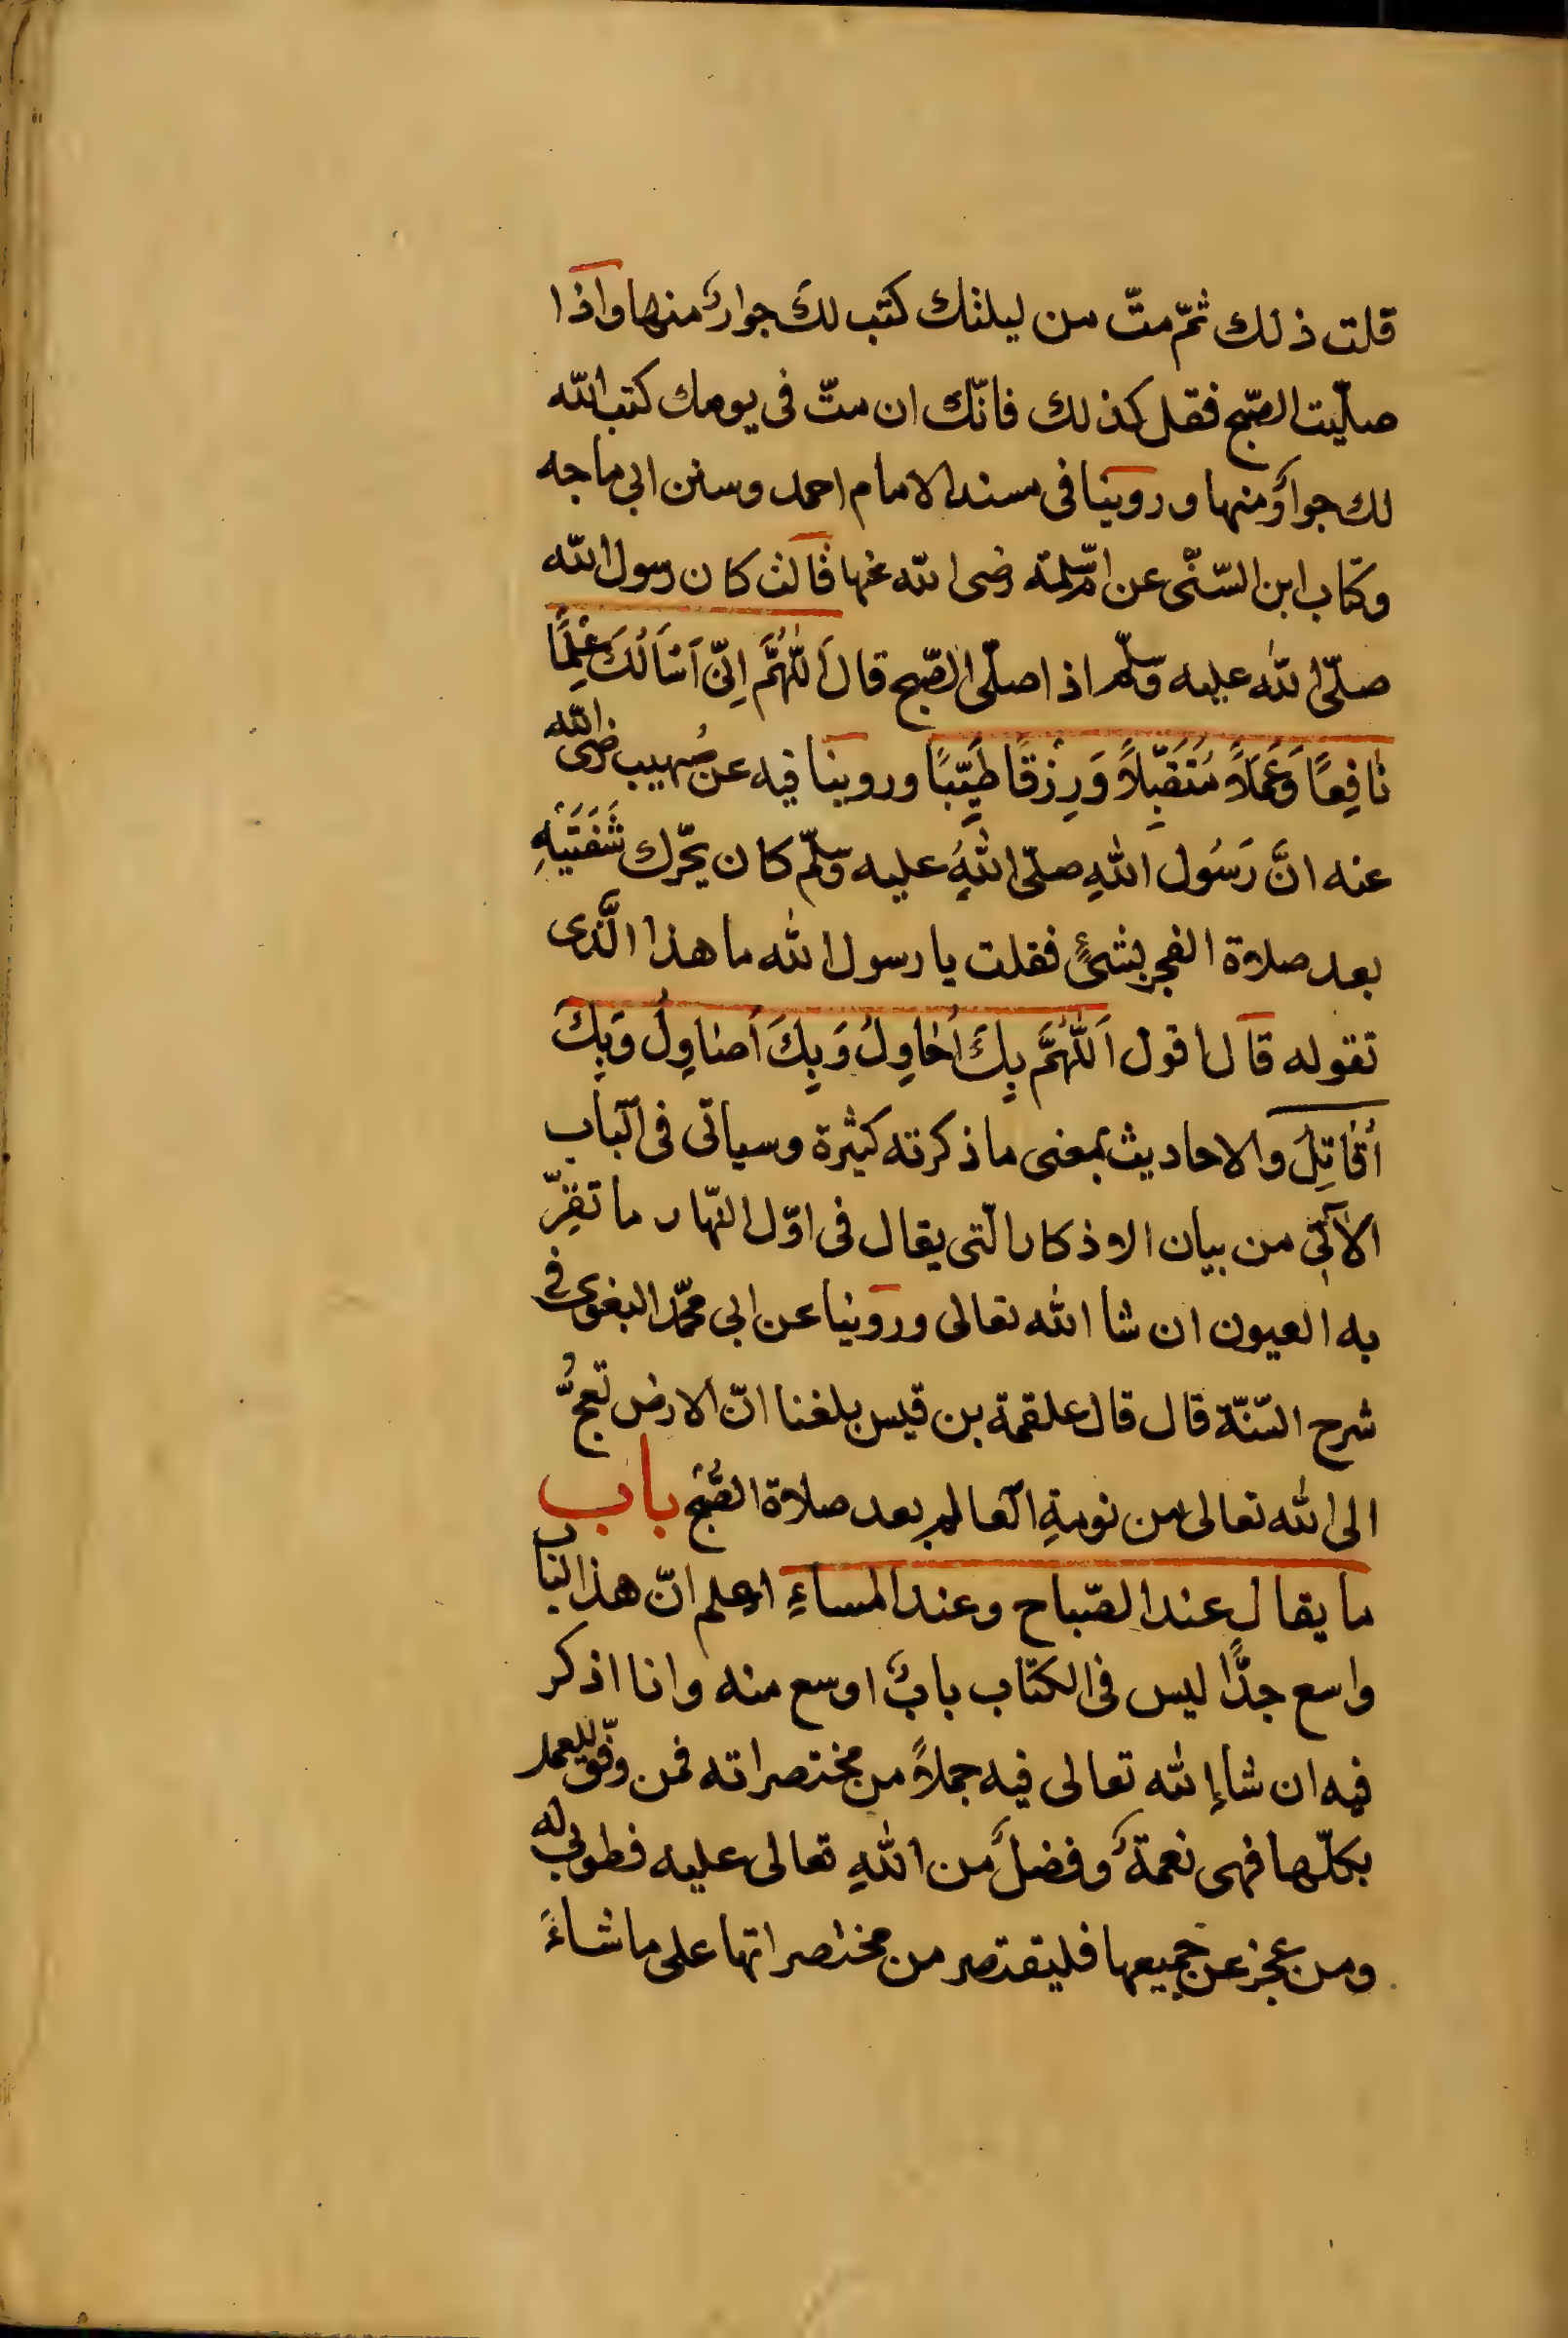 قلت ذلك ثمّ متّ من ليلتك كتب لك جوارٌ منها واذا
صلّيت الصّبح فقل كذلك فانّك ان متّ فى يومك كتب الله
لك جوارٌ منها وروينا فى مسند الامام احمد وسنن ابى ماجه
وكتاب ابن السّنّى عن امّ سلمة رضى الله عنها قالت كان رسول الله
صلّى الله عليه وسلّم اذا صلّى الصّبح قال اَللّٰهُمَّ اِنّى اَسْاَلُكَ عِلْمًا
نَافِعًا وَعَمَلاً مُتَقَبِّلاً وَرِزْقًا طَيِّبًا وروينا فيه عن صُهيب رضى الله
عنه انَّ رَسُول اللهِ صلّى اللهُ عليه وسلّم كان يحّرك شَفَتَيْهِ
بعد صلاة الفجر بشئٍ فقلت يا رسول الله ما هذا الَّذى
تقوله قال اقول اَللّٰهُمَّ بِكَ اُحَاوِلُ وَبِكَ اُصَاوِلُ وَبِكَ
اُقَاتِلُ والاحاديث بمعنى ما ذكرته كثيرة وسياتى فى الباب
الآتى من بيان الاذكار الّتى يقال فى اوّل النّهار ما تقرّ
به العيون ان شا الله تعالى وروينا عن ابى محمّد البغوى فى
شرح السّنّة قال قال علقمة بن قيس بلغنا انّ الارض تعجُّ
الى الله تعالى من نومةِ العالم بعد صلاة الصُّبْح باب
ما يقال عند الصّباح وعند المساءِ اعلم انّ هذا الباب
واسع جدًّا ليس فى الكتاب بابٌ اوسع منه وانا اذكر
فيه ان شاء الله تعالى فيه جملاً من مختصراته فمن وفّق للعمل
بكلّها فهى نعمةٌ وفضلٌ من اللهِ تعالى عليه فطوبى له
ومن عجز عن جميعها فليقتصر من مختصراتها على ما شاءَ